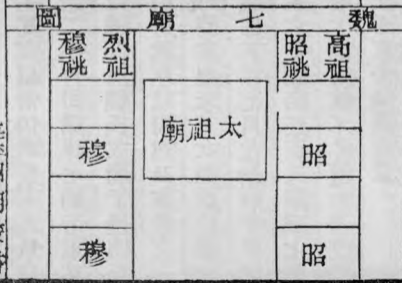 魏七廟圖
高祖
昭祧
昭
昭
太祖廟
烈祖
穆祧
穆
穆